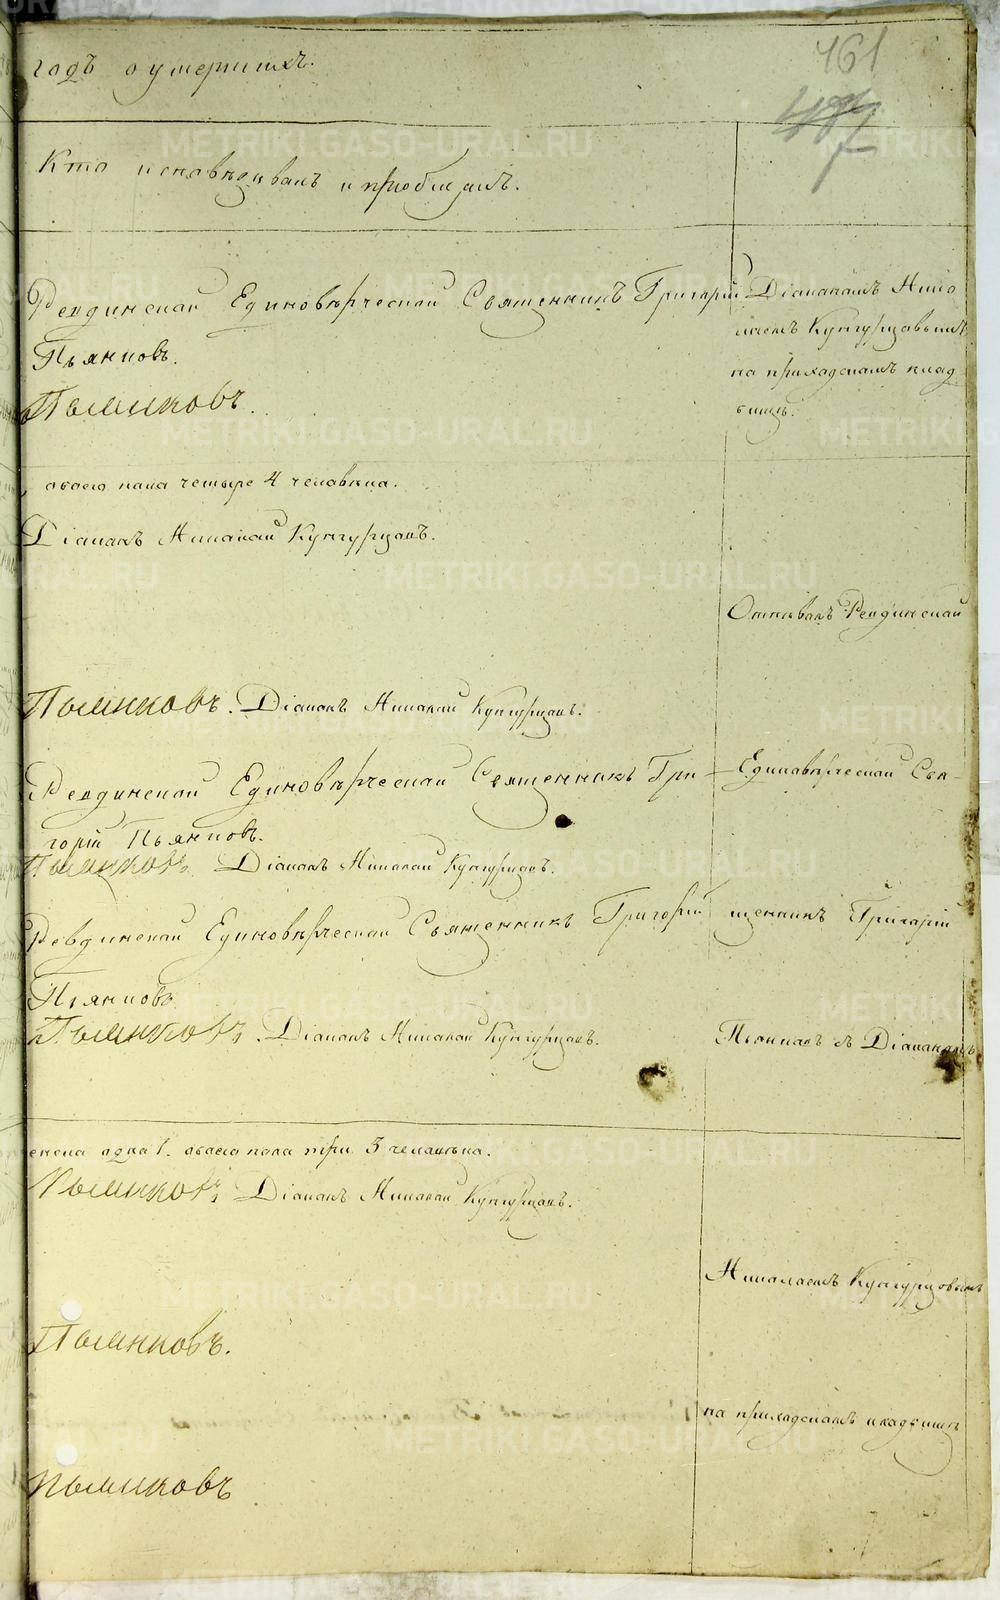 годъ о умершихъ.
461
Кто исповѣдивалъ и приобщалъ.
Ревдинской Единовѣрческой Священникъ Григорій
Пьянковъ.
Пьянковъ.
Діакономъ Нико
лаемъ Кунгурцовымъ
на приходскомъ клад
бищѣ.
обоего пола четыре 4 человѣка.
Діаконъ Николай Кунгурцовъ.
Отпѣвалъ Ревдинской
Пьянковъ. Діаконъ Николай Кунгурцовъ.
Ревдинской Единовѣрческой Священникъ Гри
горій Пьянковъ.
Единовѣрческой Свя-
Пьянковъ. Діаконъ Николай Кунгурцовъ.
Ревдинской Единовѣрческой Священникъ Григорій
Пьянковъ
щенникъ Григорій
Пьянковъ. Діаконъ Николай Кунгурцовъ.
Пьянковъ съ Діакономъ
женска одна 1. обоего пола три 3 человѣка.
Пьянковъ. Діаконъ Николай Кунгурцовъ.
Николаемъ Кунгурцовымъ
Пьянковъ.
на приходскомъ кладбищѣ
Пьянковъ
METRIKI.GASO-URAL.RU